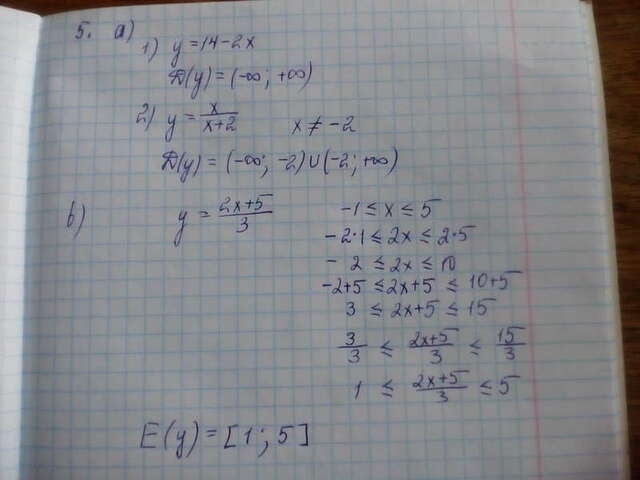 5. a)
1) y = 14 - 2x
D(y) = (-∞; +∞)
2) y = x/(x+2) x ≠ -2
D(y) = (-∞; -2) ∪ (-2; +∞)
b) y = (2x+5)/3 -1 ≤ x ≤ 5
-2·1 ≤ 2x ≤ 2·5
-2 ≤ 2x ≤ 10
-2+5 ≤ 2x+5 ≤ 10+5
3 ≤ 2x+5 ≤ 15
3/3 ≤ (2x+5)/3 ≤ 15/3
1 ≤ (2x+5)/3 ≤ 5
E(y) = [1; 5]